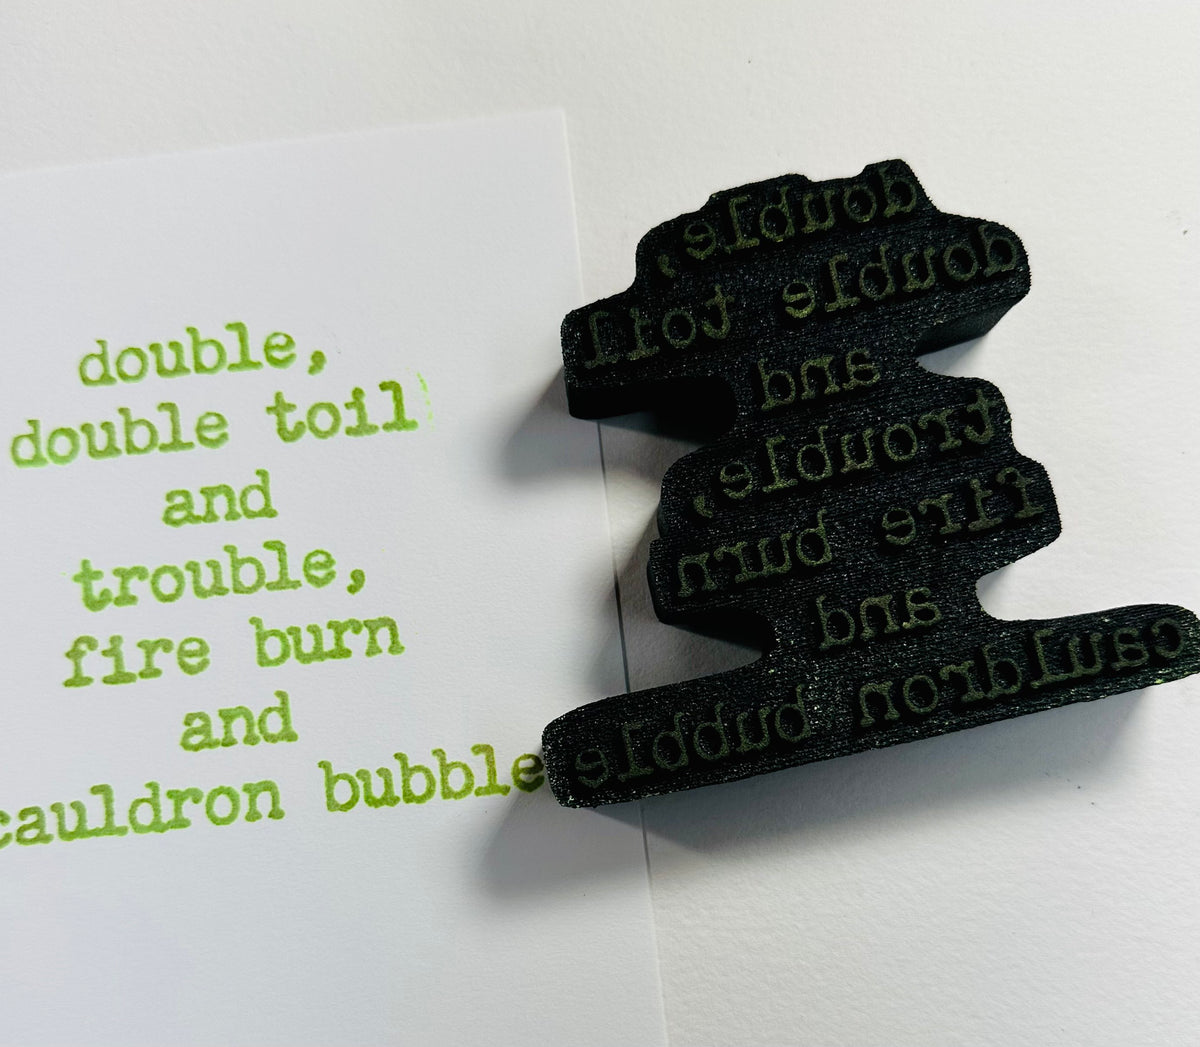 double,
double toil
and
trouble,
fire burn
and
cauldron bubble
double,
double toil
and
trouble,
fire burn
and
cauldron bubble